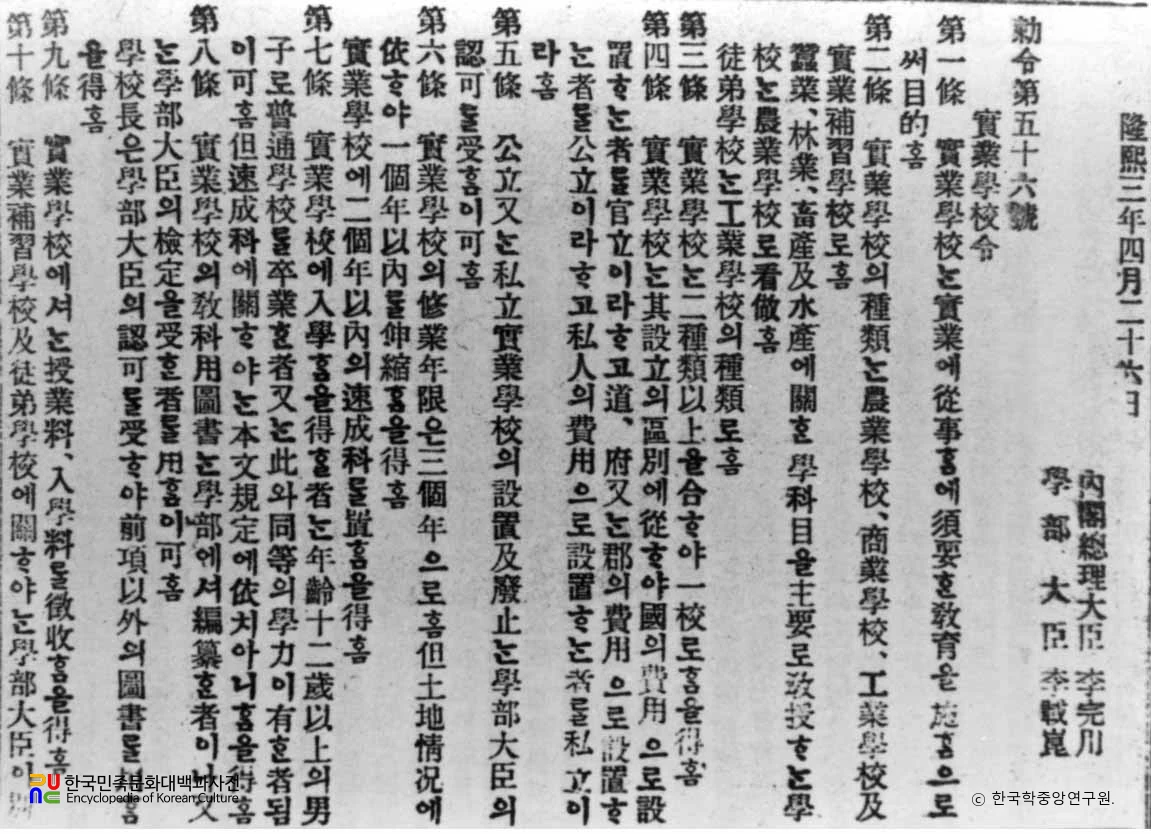 隆熙三年四月二十六日
內閣總理大臣 李完用
學部大臣 李載崑
勅令第五十六號
實業學校令
第一條 實業學校는實業에從事홈에須要ᄒᆞᆫ敎育을施홈으로
써目的홈
第二條 實業學校의種類는農業學校、商業學校、工業學校及
實業補習學校로홈
蠶業、林業、畜產及水產에關ᄒᆞᆫ學科目을主要로敎授ᄒᆞ는學
校는農業學校로看做홈
徒弟學校는工業學校의種類로홈
第三條 實業學校는二種類以上을合ᄒᆞ야一校로홈을得홈
第四條 實業學校는其設立의區別에從ᄒᆞ야國의費用으로設
置ᄒᆞ는者를官立이라ᄒᆞ고道、府又는郡의費用으로設置ᄒᆞ
는者를公立이라ᄒᆞ고私人의費用으로設置ᄒᆞ는者를私立이
라홈
第五條 公立又는私立實業學校의設置及廢止는學部大臣의
認可를受홈이可홈
第六條 實業學校의修業年限은三個年으로홈但土地情況에
依ᄒᆞ야一個年以內를伸縮홈을得홈
實業學校에二個年以內의速成科를置홈을得홈
第七條 實業學校에入學홈을得ᄒᆞᆯ者는年齡十二歲以上의男
子로普通學校를卒業ᄒᆞᆫ者又는此와同等의學力이有ᄒᆞᆫ者됨
이可홈但速成科에關ᄒᆞ야는本文規定에依치아니홈을得홈
第八條 實業學校의敎科用圖書는學部에셔編纂ᄒᆞᆫ者이나又
는學部大臣의檢定을受ᄒᆞᆫ者를用홈이可홈
學校長은學部大臣의認可를受ᄒᆞ야前項以外의圖書를홈
을得홈
第九條 實業學校에셔는授業料、入學料를徵收홈을得홈
第十條 實業補習學校及徒弟學校에關ᄒᆞ야는學部大臣이
한국민족문화대백과사전
Encyclopedia of Korean Culture
ⓒ 한국학중앙연구원.